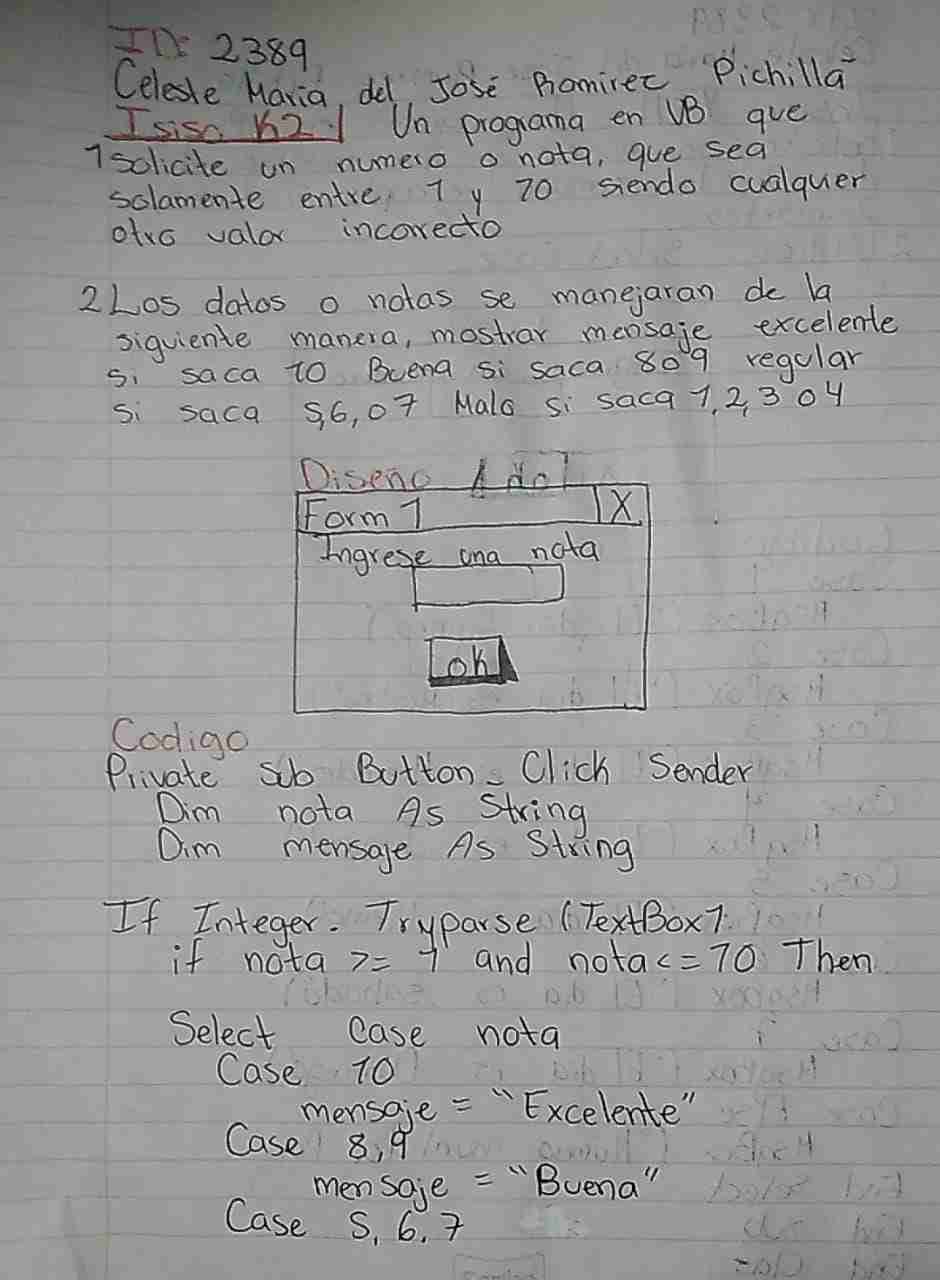 ID: 2389
Celeste Maria del José Ramirez Pichilla
Isiso K2.1 Un programa en VB que
1 Solicite un numero o nota, que sea
solamente entre 1 y 10 siendo cualquier
otro valor incorrecto
2 Los datos o notas se manejaran de la
siguiente manera, mostrar mensaje excelente
si saca 10 Buena si saca 8 o 9 regular
si saca 5,6, o 7 Malo si saca 1,2,3 o 4
Diseño
Form 1 X
Ingrese una nota
ok
Codigo
Private Sub Button_Click Sender
Dim nota As String
Dim mensaje As String
If Integer. Tryparse (TextBox1.
if nota >= 1 and nota <= 10 Then
Select Case nota
Case 10
mensaje = "Excelente"
Case 8,9
mensaje = "Buena"
Case 5, 6, 7